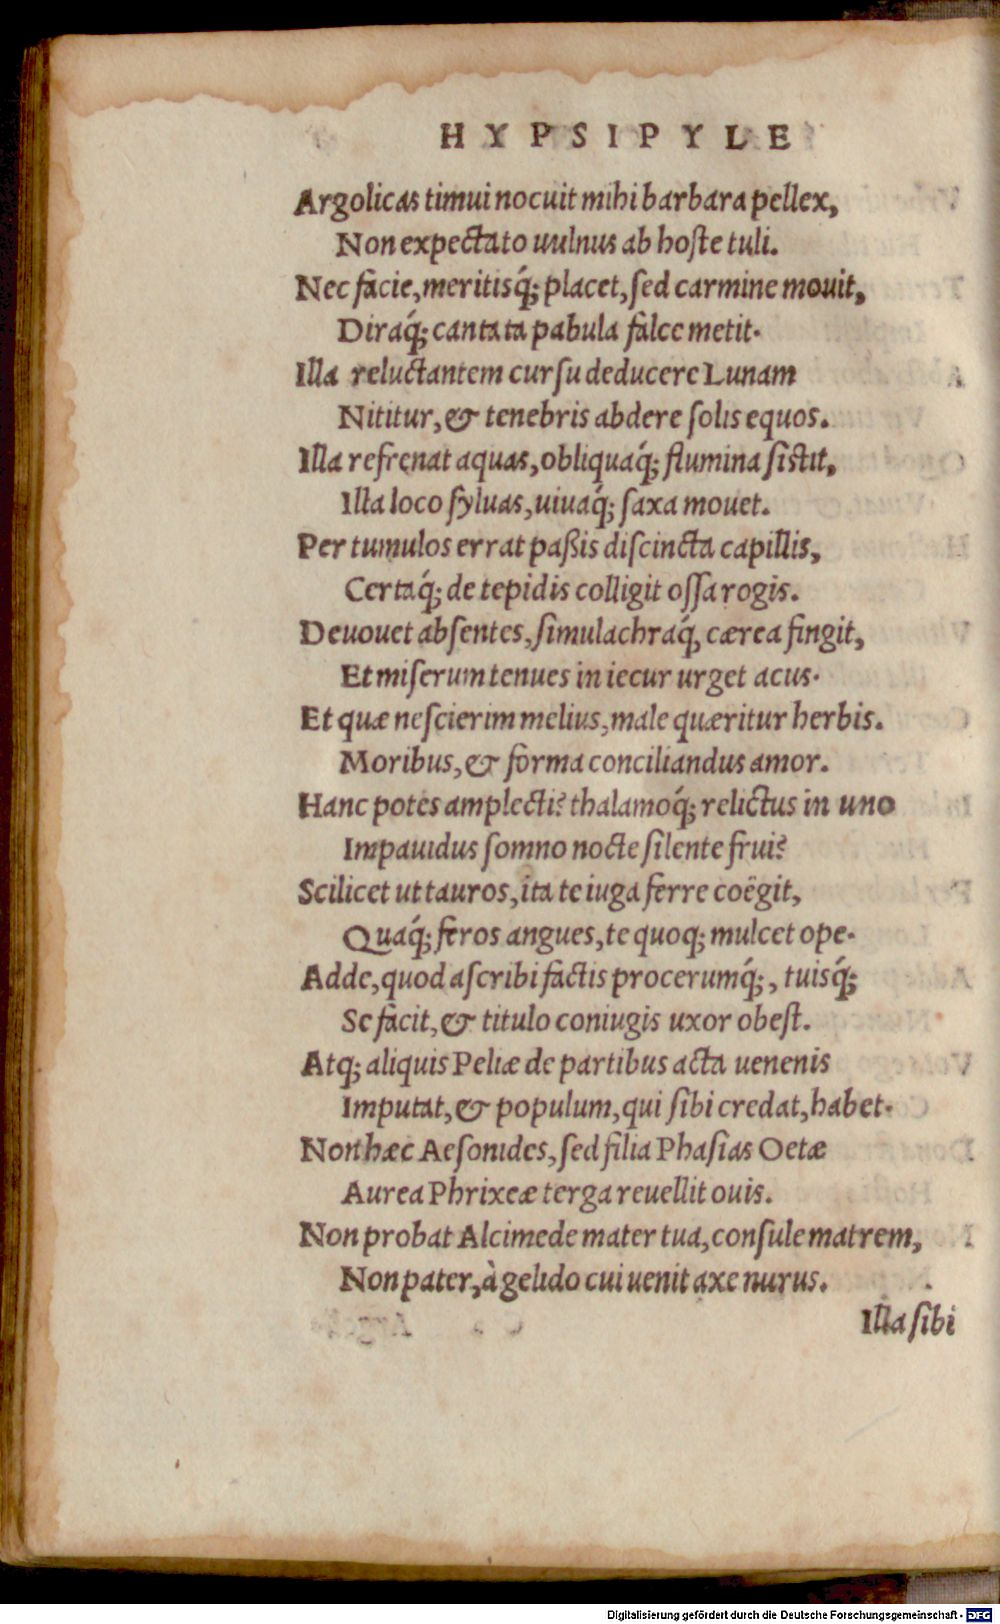 HYPSIPYLE
Argolicas timui nocuit mihi barbara pellex,
Non expectato uulnus ab hoste tuli.
Nec facie, meritisq́; placet, sed carmine mouit,
Diraq́; cantata pabula falce metit.
Illa reluctantem cursu deducere Lunam
Nititur, & tenebris abdere solis equos.
Illa refrenat aquas, obliquaq́; flumina sistit,
Illa loco syluas, uiuaq́; saxa mouet.
Per tumulos errat paßis discincta capillis,
Certaq́; de tepidis colligit ossa rogis.
Deuouet absentes, simulachraq́, cærea fingit,
Et miserum tenues in iecur urget acus.
Et quæ nescierim melius, male quæritur herbis.
Moribus, & forma conciliandus amor.
Hanc potes amplecti? thalamoq́; relictus in uno
Impauidus somno nocte silente frui?
Scilicet ut tauros, ita te iuga ferre coëgit,
Quaq́; feros angues, te quoq; mulcet ope.
Adde, quod ascribi factis procerumq́;, tuisq́;
Se facit, & titulo coniugis uxor obest.
Atq; aliquis Peliæ de partibus acta uenenis
Imputat, & populum, qui sibi credat, habet.
Non hæc Aesonides, sed filia Phasias Oetæ
Aurea Phrixeæ terga reuellit ouis.
Non probat Alcimede mater tua, consule matrem,
Non pater, à gelido cui uenit axe nurus.
Illa sibi
Digitalisierung gefördert durch die Deutsche Forschungsgemeinschaft - DFG